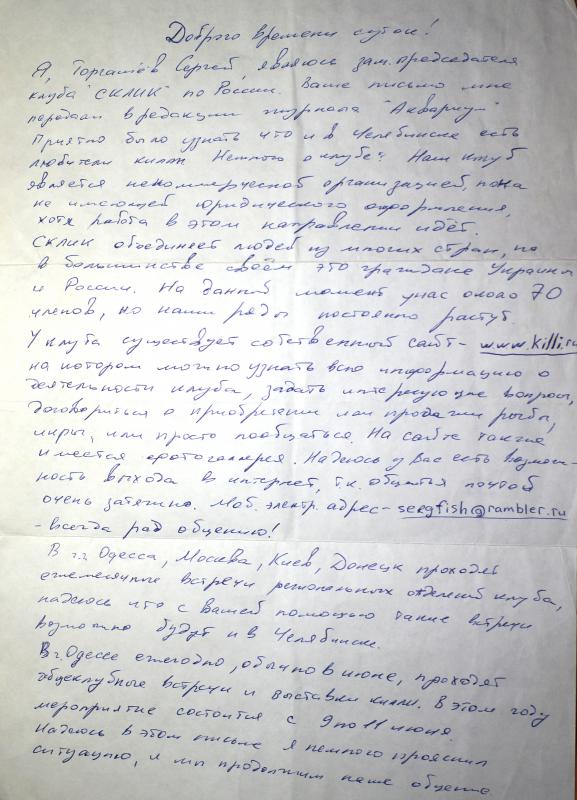 Доброго времени суток!
Я, Торгашёв Сергей, являюсь зам. председателя
клуба "СКЛИК" по России. Ваше письмо мне
передали в редакции журнала "Аквариум"
Приятно было узнать что и в Челябинске есть
любители килли. Немного о клубе: Наш клуб
является некоммерческой организацией, пока
не имеющей юридического оформления,
хотя работа в этом направлении идёт.
СКЛИК объединяет людей из многих стран, но
в большинстве своём это граждане Украины
и России. На данный момент у нас около 70
членов, но наши ряды постоянно растут.
У клуба существует собственный сайт - www.killi.ru
на котором можно узнать всю информацию о
деятельности клуба, задать интересующие вопросы,
договориться о приобретении или продаже рыбы,
икры, или просто пообщаться. На сайте также
имеется фотогаллерея. Надеюсь у Вас есть возмож-
ность выхода в интернет, т.к. общаться почтой
очень затяжно. Мой электр. адрес - seegfish@rambler.ru
- всегда рад общению!
В г.г. Одесса, Москва, Киев, Донецк проходят
ежемесячные встречи региональных отделений клуба,
надеюсь что с вашей помощью такие встречи
возможно будут и в Челябинске.
В г. Одессе ежегодно, обычно в июне, проходят
общеклубные встречи и выставки килли. В этом году
мероприятие состоится с 9 по 11 июня.
Надеюсь в этом письме я немного прояснил
ситуацию, и мы продолжим наше общение.